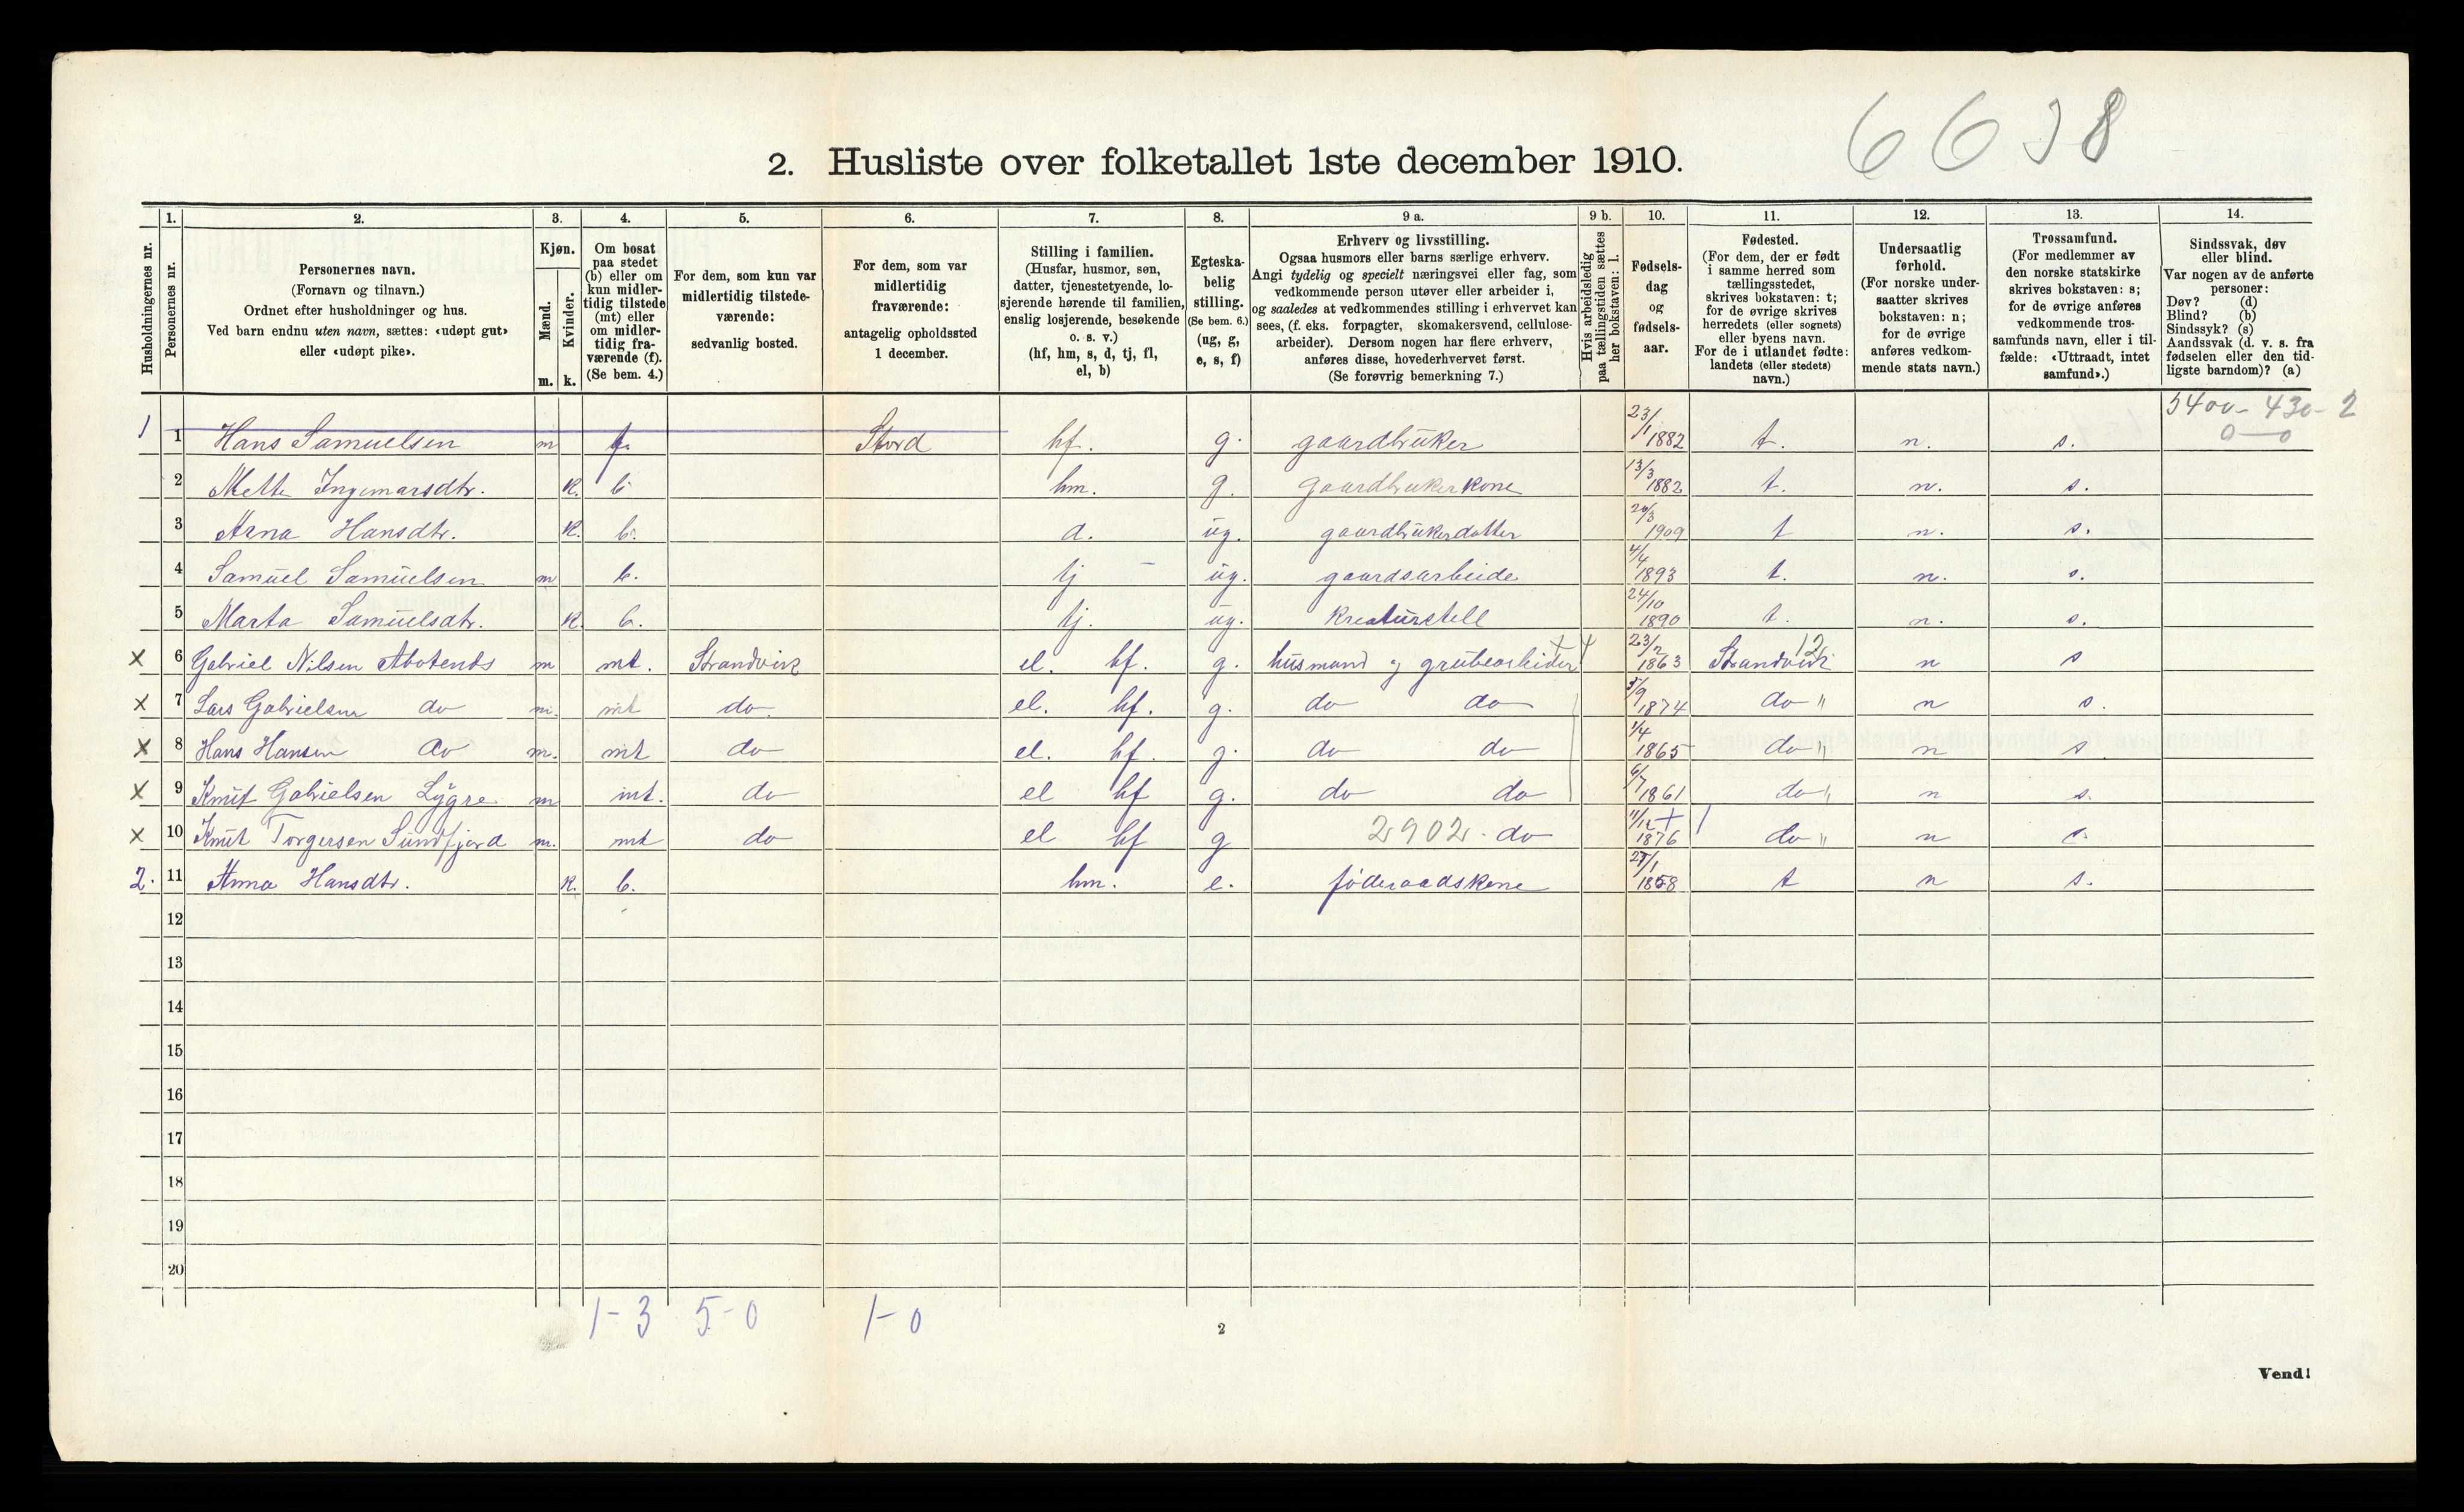 6638
2. Husliste over folketallet 1ste december 1910.
Husholdningernes nr.
1. Personernes nr.
2. Personernes navn. (Fornavn og tilnavn.) Ordnet efter husholdninger og hus. Ved barn endnu uten navn, sættes: «udøpt gut» eller «udøpt pike».
3. Kjøn. Mænd. m. Kvinder. k.
4. Om bosat paa stedet (b) eller om kun midlertidig tilstede (mt) eller om midlertidig fraværende (f). (Se bem. 4.)
5. For dem, som kun var midlertidig tilstedeværende: sedvanlig bosted.
6. For dem, som var midlertidig fraværende: antagelig opholdssted 1 december.
7. Stilling i familien. (Husfar, husmor, søn, datter, tjenestetyende, losjerende hørende til familien, enslig losjerende, besøkende o. s. v.) (hf, hm, s, d, tj, fl, el, b)
8. Egteskabelig stilling. (Se bem. 6.) (ug, g, e, s, f)
9 a. Erhverv og livsstilling. Ogsaa husmors eller barns særlige erhverv. Angi tydelig og specielt næringsvei eller fag, som vedkommende person utøver eller arbeider i, og saaledes at vedkommendes stilling i erhvervet kan sees, (f. eks. forpagter, skomakersvend, cellulosearbeider). Dersom nogen har flere erhverv, anføres disse, hovederhvervet først. (Se forøvrig bemerkning 7.)
9 b. Hvis arbeidsledig paa tællingstiden sættes her bokstaven: l.
10. Fødselsdag og fødselsaar.
11. Fødested. (For dem, der er født i samme herred som tællingsstedet, skrives bokstaven: t; for de øvrige skrives herredets (eller sognets) eller byens navn. For de i utlandet fødte: landets (eller stedets) navn.)
12. Undersaatlig forhold. (For norske undersaatter skrives bokstaven: n; for de øvrige anføres vedkommende stats navn.)
13. Trossamfund. (For medlemmer av den norske statskirke skrives bokstaven: s; for de øvrige anføres vedkommende trossamfunds navn, eller i tilfælde: «Uttraadt, intet samfund».)
14. Sindssvak, døv eller blind. Var nogen av de anførte personer: Døv? (d) Blind? (b) Sindssyk? (s) Aandssvak (d. v. s. fra fødselen eller den tidligste barndom)? (a)
5400 - 430 - 2
0 — 0
1 1 Hans Samuelsen m f. Stord hf. g. gaardbruker 23/1 1882 t. n. s.
2 Mette Ingemarsdtr. k. b hm. g. gaardbrukerkone 13/3 1882 t. n. s.
3 Anna Hansdtr. k. b. d. ug. gaardbrukerdatter 20/3 1909 t n. s.
4 Samuel Samuelsen m b. tj - ug. gaardsarbeide 4/4 1893 t. n. s.
5 Marta Samuelsdtr. k. b. tj. ug. kreaturstell 24/10 1890 t. n. s.
x 6 Gabriel Nilsen m mt. Strandvik el. hf. g. husmand og grubearbeider 23/2 1863 Strandvik 12 n s
x 7 Lars Gabrielsen do m. mt do. el. hf. g. do do 5/9 1874 do " n s.
x 8 Hans Hansen do m. mt do el. hf. g. do do 1/4 1865 do " n s
x 9 Knut Gabrielsen Lygre m mt. do el hf g. do do 6/7 1861 do " n s.
x 10 Knut Torgersen Sundfjord m. mt do el hf g 2902 do 11/12 1876 do " n s.
2. 11 Anna Hansdtr. k. b. hm. e. føderaadskone 1858 t n s.
12
13
14
15
16
17
18
19
20
1-3 5-0 1-0
2
Vend!